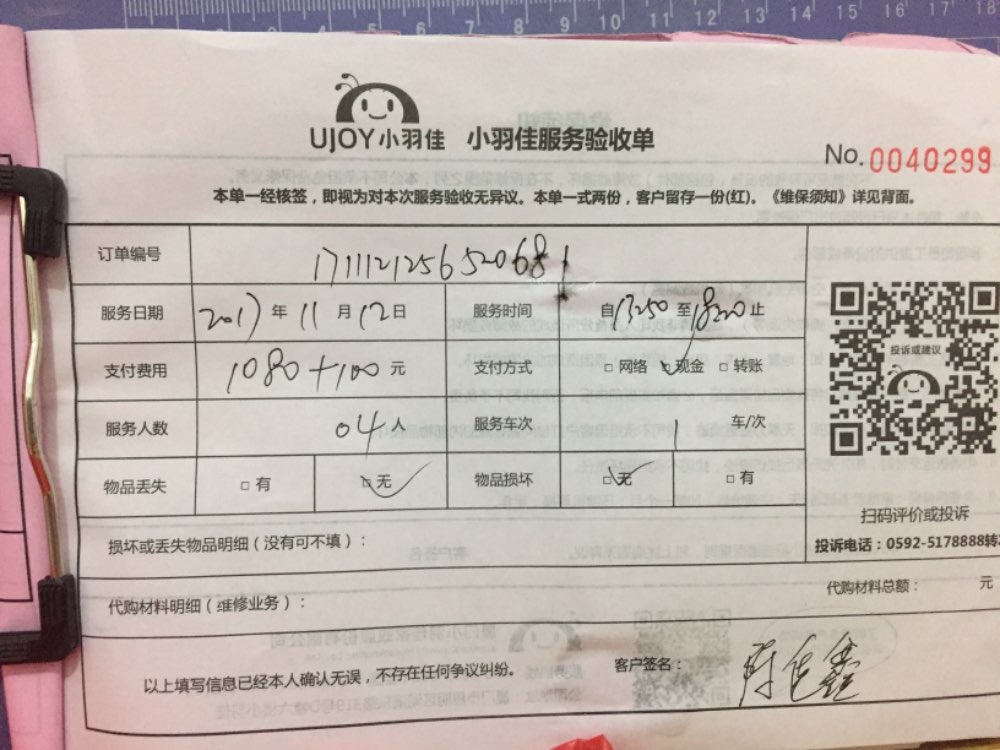 10 11 12 13 14 15 16 17 18
UJOY小羽佳 小羽佳服务验收单
No. 0040299
本单一经核签，即视为对本次服务验收无异议。本单一式两份，客户留存一份(红)。《维保须知》详见背面。
订单编号
服务日期 2017年11月12日 服务时间 自13:50至18:20止
支付费用 1080+100元 支付方式 □网络 □现金 □转账
服务人数 04人 服务车次 车/次
物品丢失 □有 □无 物品损坏 □无 □有
投诉或建议
扫码评价或投诉
投诉电话：0592-5178888转
损坏或丢失物品明细（没有可不填）：
代购材料明细（维修业务）：
代购材料总额： 元
以上填写信息已经本人确认无误，不存在任何争议纠纷。
客户签名：